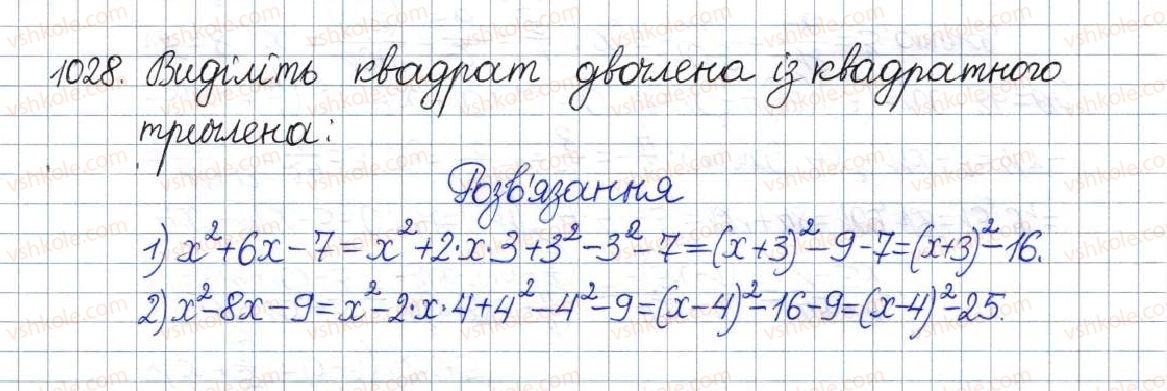 1028. Виділіть квадрат двочлена із квадратного
тричлена:
Розв'язання
1) x²+6x-7=x²+2·x·3+3²-3²-7=(x+3)²-9-7=(x+3)²-16.
2) x²-8x-9=x²-2·x·4+4²-4²-9=(x-4)²-16-9=(x-4)²-25.
vshkole.com